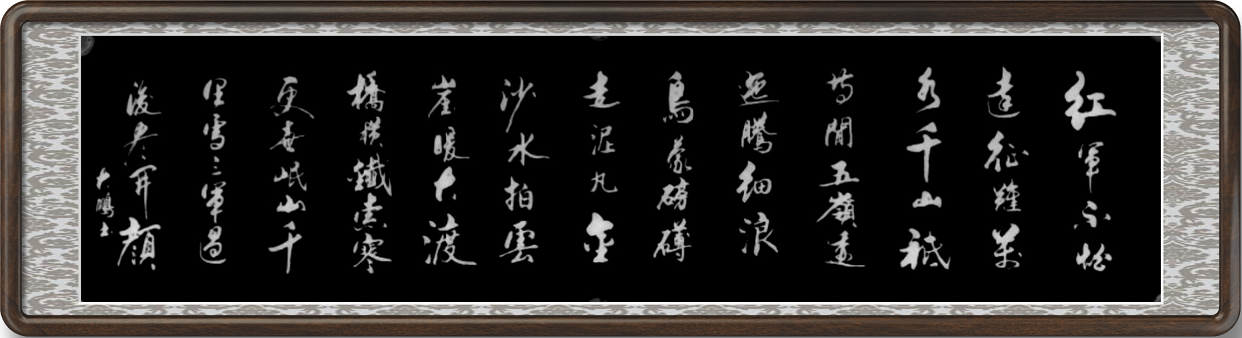 紅軍不怕
遠征難萬
水千山祗
等閒五嶺逶
迤騰細浪
烏蒙磅礴
走泥丸金
沙水拍雲
崖暖大渡
橋橫鐵索寒
更喜岷山千
里雪三軍過
後盡開顏
大鵬書